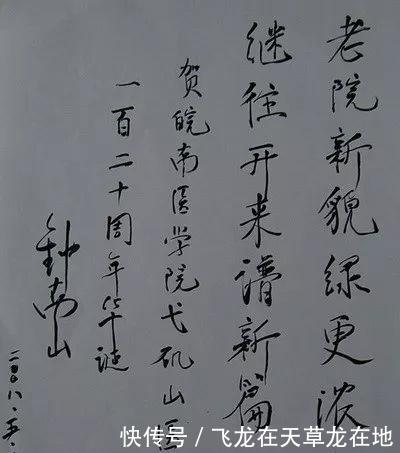 老院新貌绿更浓
继往开来谱新篇
贺皖南医学院弋矶山医
一百二十周年华诞
钟南山
二〇〇八·五·
快传号/飞龙在天草龙在地